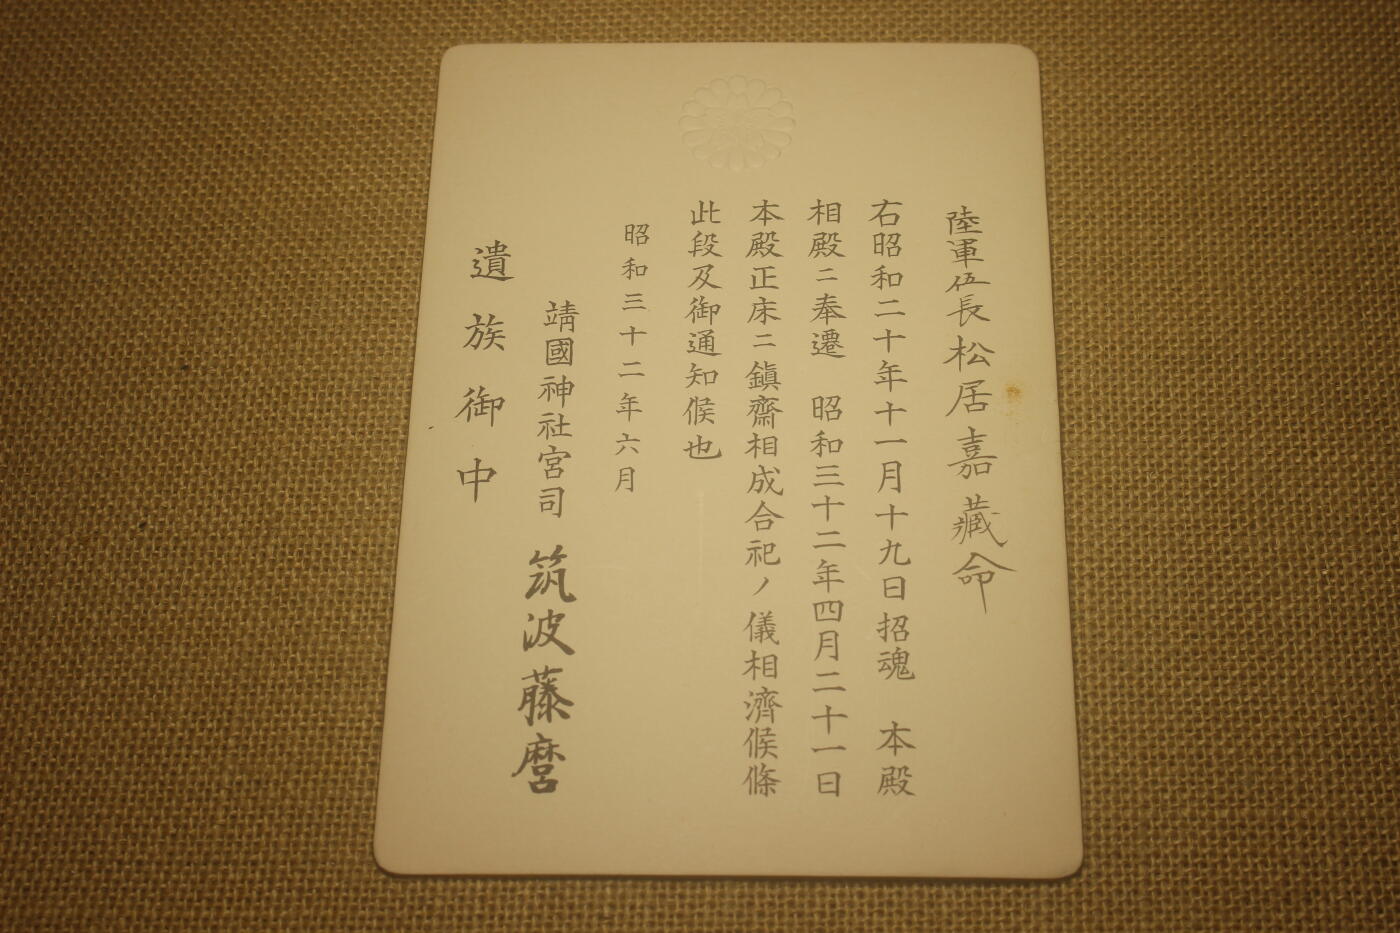 陸軍伍長松居嘉藏命
右昭和二十年十一月十九日招魂　本殿
相殿ニ奉遷　昭和三十二年四月二十一日
本殿正床ニ鎮齋相成合祀ノ儀相濟候條
此段及御通知候也
昭和三十二年六月
靖國神社宮司　筑波藤麿
遺族御中